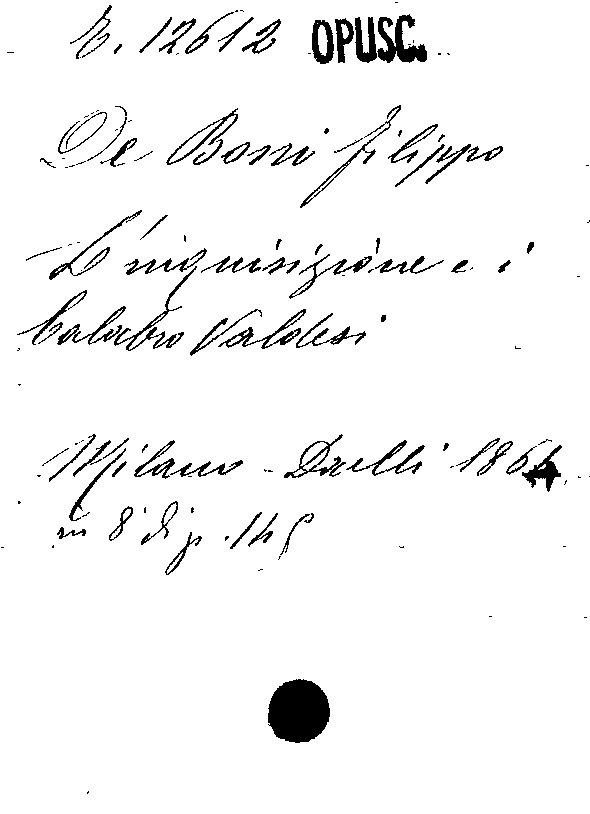 E. 12612 OPUSC.
De Boni Filippo
L'inquisizione e i
Calabro Valdesi
Milano - Daelli 1864
in 8° di p. 145